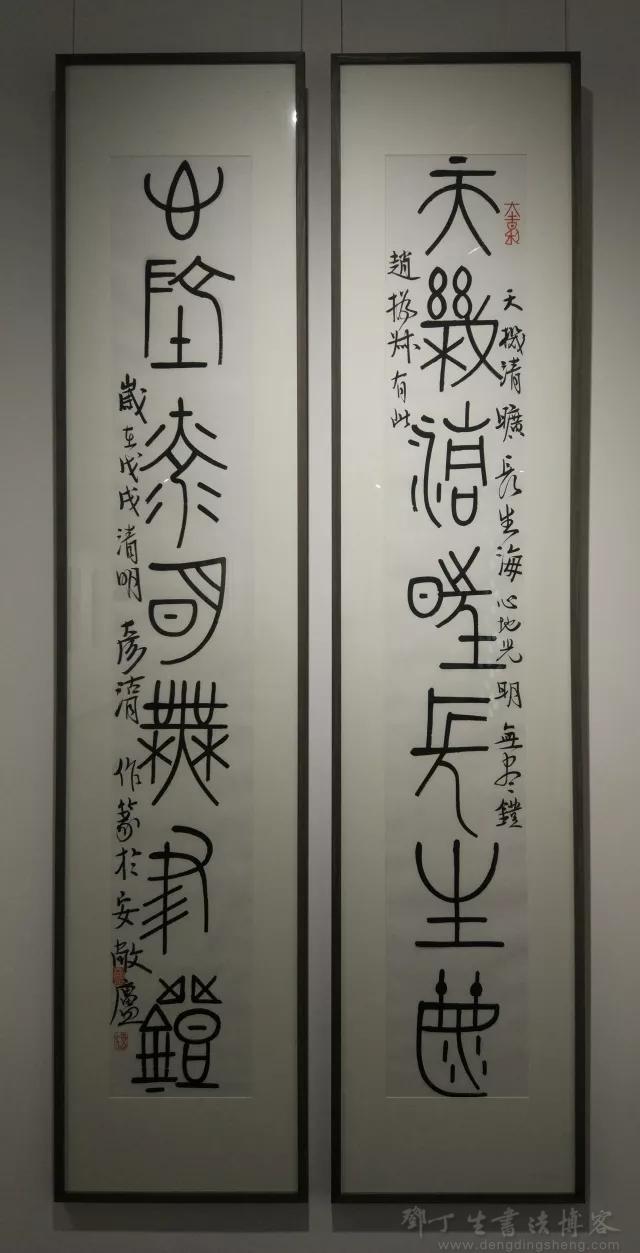 天幾清曠長生海
天機清曠長生海心地光明無盡鐙
趙撝叔有此
心地光明無盡鐙
歲在戊戌清明彥湑作篆於安敞廬
鄧丁生書法博客
www.dengdingsheng.com